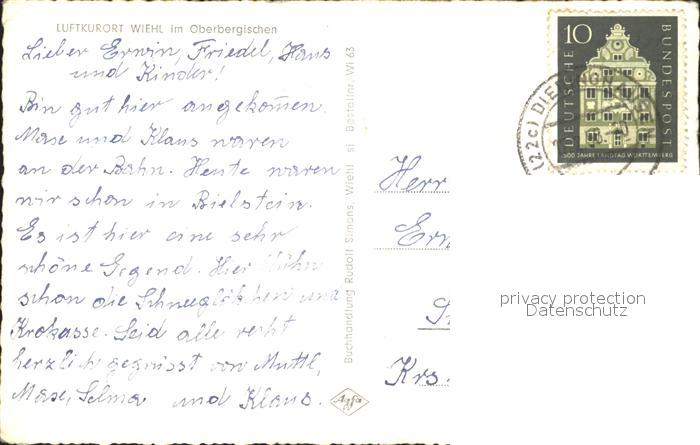 LUFTKURORT WIEHL im Oberbergischen
Lieber Erwin, Friedel, Hans
und Kinder!
Bin gut hier angekom̄en.
Mase und Klaus waren
an der Bahn. Heute waren
wir schon in Bielstein.
Es ist hier eine sehr
schöne Gegend. Hier blühn
schon die Schneeglökchen und
Krokasse. Seid alle recht
herzlich gegrüsst von Muttl,
Mase, Selma und Klaus.
Buchhandlung Rudolf Simons, Wiehl si Bestellnr. Wi 63
Agfa
10
DEUTSCHE
BUNDESPOST
500 JAHRE LANDTAG WÜRTTEMBERG
(22c)
Herr
Krs.
privacy protection
Datenschutz